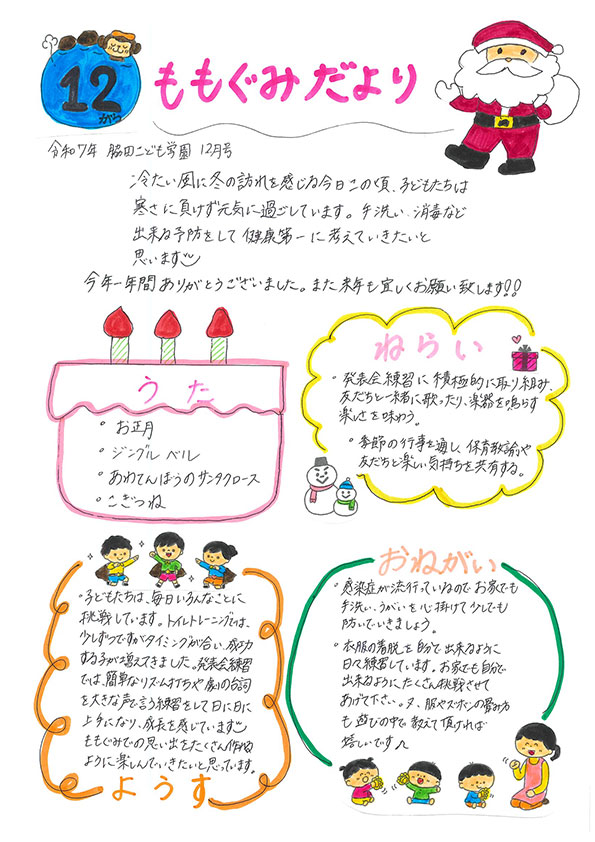 12
がつ
ももぐみだより
令和7年 脇田こども学園 12月号
冷たい風に冬の訪れを感じる今日この頃、子どもたちは
寒さに負けず元気に過ごしています。手洗い、消毒など
出来る予防をして健康第一に考えていきたいと
思います
今年一年間ありがとうございました。また来年も宜しくお願い致します!!
うた
・お正月
・ジングルベル
・あわてんぼうのサンタクロース
・こぎつね
ねらい
・発表会練習に積極的に取り組み、
友だちと一緒に歌ったり、楽器を鳴らす
楽しさを味わう。
・季節の行事を通し、保育教諭や
友だちと楽しい気持ちを共有する。
・子どもたちは、毎日いろんなことに
挑戦しています。トイレトレーニングでは、
少しずつですがタイミングが合い、成功
する子が増えてきました。発表会練習
では、簡単なリズム打ちや劇の台詞
を大きな声で言う練習をして日に日に
上手になり、成長を感じています
ももぐみでの思い出をたくさん作れる
ように楽しんでいきたいと思っています。
ようす
おねがい
・感染症が流行っているのでお家でも
手洗い、うがいを心掛けて少しでも
防いでいきましょう。
・衣服の着脱を自分で出来るように
日々練習しています。お家でも自分で
出来るようにたくさん挑戦させて
あげて下さい。又、服やズボンの畳み方
も遊びの中で教えて頂ければ
嬉しいです